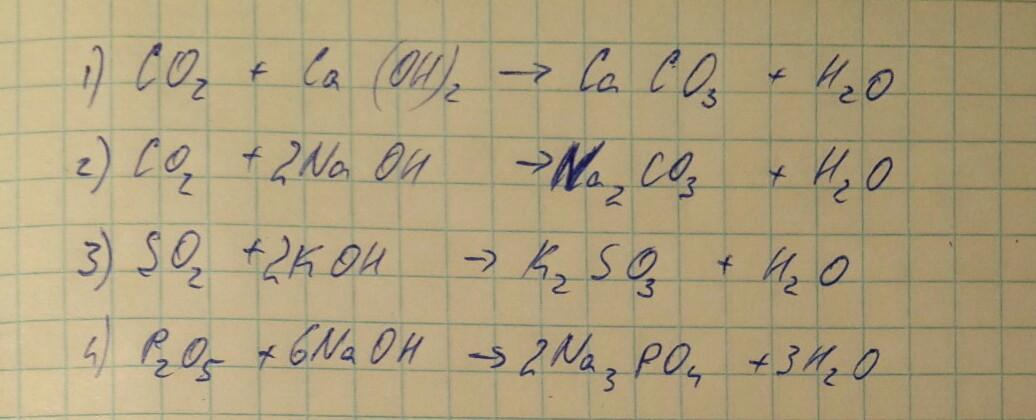 1) CO₂ + Ca (OH)₂ → Ca CO₃ + H₂O
2) CO₂ + 2NaOH → Na₂CO₃ + H₂O
3) SO₂ + 2KOH → K₂SO₃ + H₂O
4) P₂O₅ + 6NaOH → 2Na₃PO₄ + 3H₂O